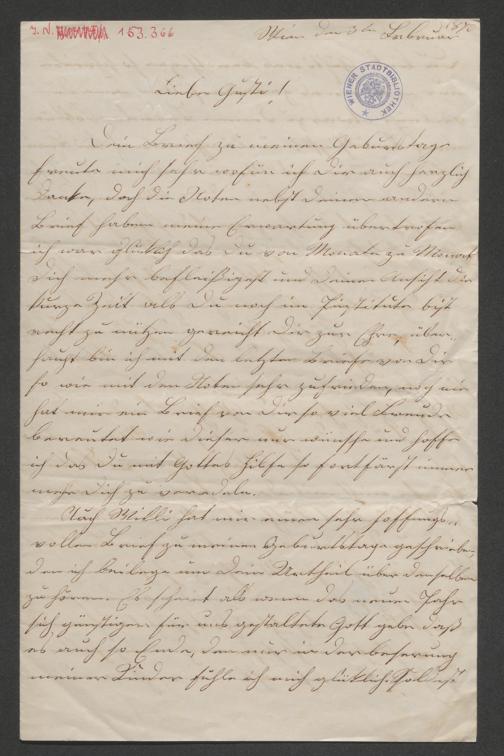 J.N. 153.366
Wien den 3ten Februar 1870
WIENER STADTBIBLIOTHEK
Liebe Gusti!
Dein Brief zu meinen Geburtstage
freute mich sehr wofür ich Dir auch herzlich
danke, doch die Noten nebst Deinen andern
Brief haben meine Erwartung übertrofen
ich war glüklich das Du von Monate zu Monat
Dich mehr befleißigest und Deine Ansicht die
kurze Zeit als Du noch im Institute bist
recht zu nützen gereicht Dir zur Ehre, über-
haupt bin ich mit den letzten Briefe von Dir
so wie mit den Noten sehr zufrieden, noch nie
hat mir ein Brief von Dir so viel Freude
bereutet wie dieser nur wünsche und hoffe
ich das Du mit Gottes Hilfe so fortfärst immer
mehr Dich zu veredeln.
Auch Willi hat mir einen sehr hoffnungs-
vollen Brief zu meinen Geburtstage geschrieben
den ich beilege um Dein Urtheil über denselben
zu hören. Es scheint als wenn das neue Jahr
sich günstiger für uns gestaltete Gott gebe daß
es auch so Ende, den nur in der beserung
meiner Kinder fühle ich mich glüklich. Soldest